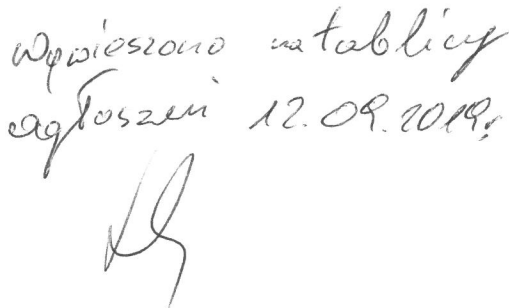 Wywieszono na tablicy
ogłoszeń 12.09.2019r